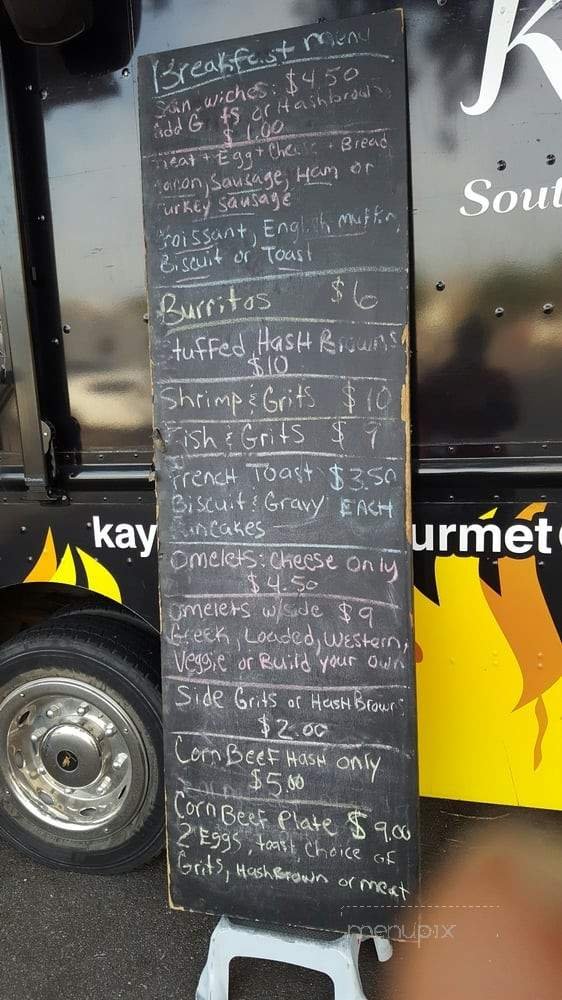 Breakfast menu
$4.50
add G ts or Hashbrowns
$1.00
meat + Egg + Cheese + Bread
Bacon, Sausage, Ham or
Turkey sausage
Croissant, English muffin,
Biscuit or Toast
Burritos $6
Stuffed Hash Browns
$10
Shrimp & Grits $10
Fish & Grits $9
French Toast $3.50
Biscuit & Gravy EACH
Pancakes
Omelets: Cheese only
$4.50
omelets w/side $9
Greek, Loaded, Western,
Veggie or Build your own
Side Grits or HashBrowns
$2.00
Corn Beef Hash only
$5.00
Corn Beef Plate $9.00
2 Eggs, toast, choice of
Grits, HashBrown or meat
K
Sout
kay
urmet
menupix